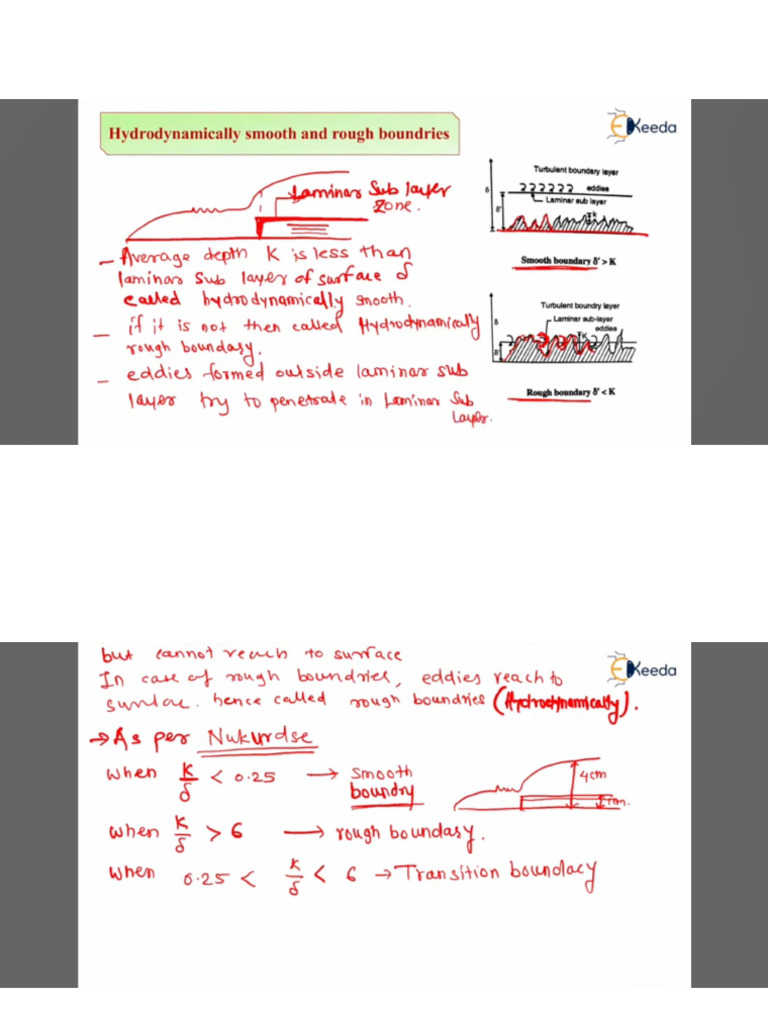 Hydrodynamically smooth and rough boundries
EKeeda
Laminar Sub layer
zone.
– Average depth K is less than
laminar sub layer of surface δ
called hydrodynamically smooth.
– if it is not then called Hydrodynamically
rough boundary.
– eddies formed outside laminar sub
layer try to penetrate in Laminar Sub
Layer.
Turbulent boundary layer
eddies
Laminar sub layer
δ
δ'
K
Smooth boundary δ' > K
Turbulent boundry layer
Laminar sub-layer
eddies
δ
K
δ'
Rough boundary δ' < K
but cannot reach to surface
EKeeda
In case of rough boundries, eddies reach to
hence called rough boundries (Hydrodynamically).
→ As per Nukurdse
when K/δ < 0.25 → smooth
boundry
4cm
when K/δ > 6 → rough boundary.
when 0.25 < K/δ < 6 → Transition boundary